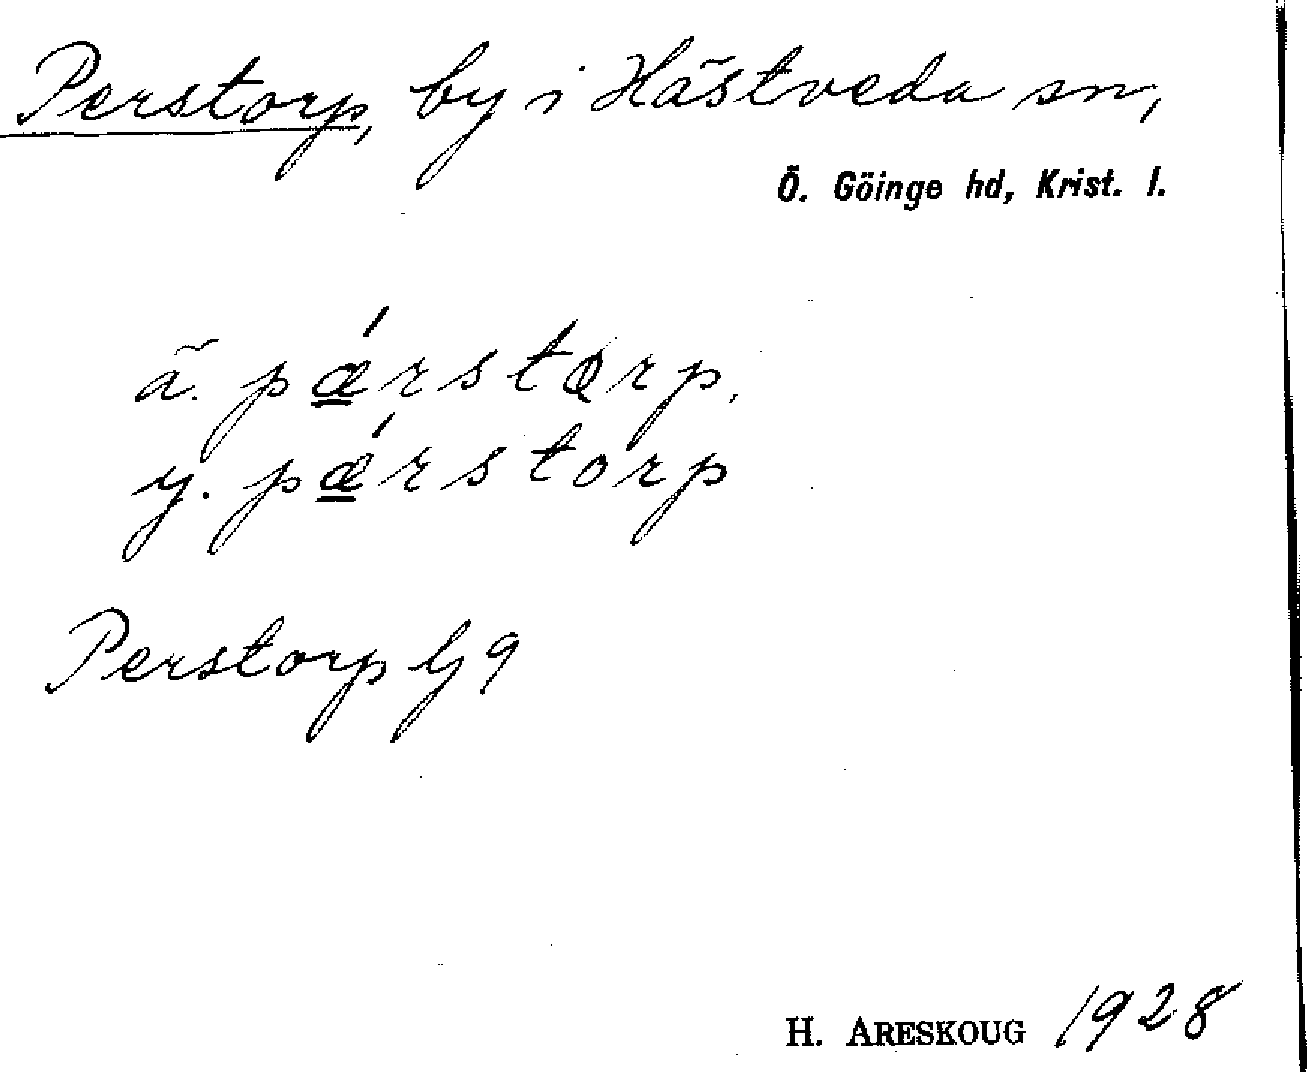 Perstorp, by i Hästveda sn,
Ö. Göinge hd, Krist. l.
ä. pǽrstǫrp,
y. pǽrstorp
Perstorp G9
H. ARESKOUG 1928